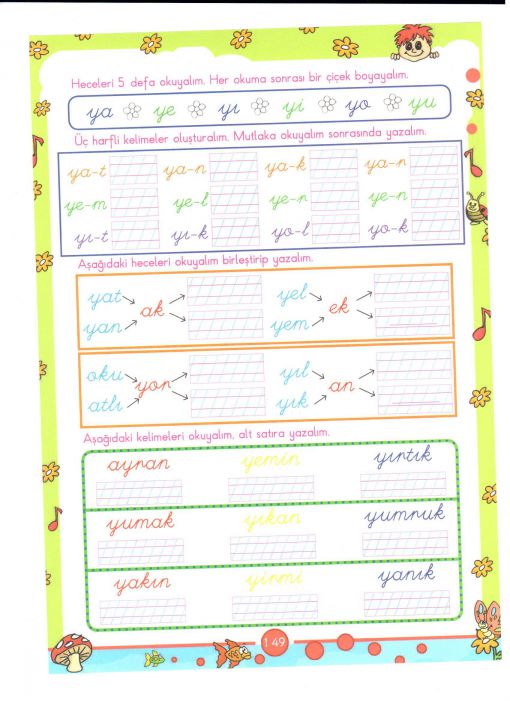 Heceleri 5 defa okuyalım. Her okuma sonrası bir çiçek boyayalım.
ya ye yı yi yo yu
Üç harfli kelimeler oluşturalım. Mutlaka okuyalım sonrasında yazalım.
ya-t ya-n ya-k ya-n
ye-m ye-l ye-n ye-n
yı-t yı-k yo-l yo-k
Aşağıdaki heceleri okuyalım birleştirip yazalım.
yat yel
ak ek
yan yem
oku yıl
yor an
atlı yık
Aşağıdaki kelimeleri okuyalım, alt satıra yazalım.
ayran yemin yırtık
yumak yıkan yumruk
yakın yirmi yanık
149